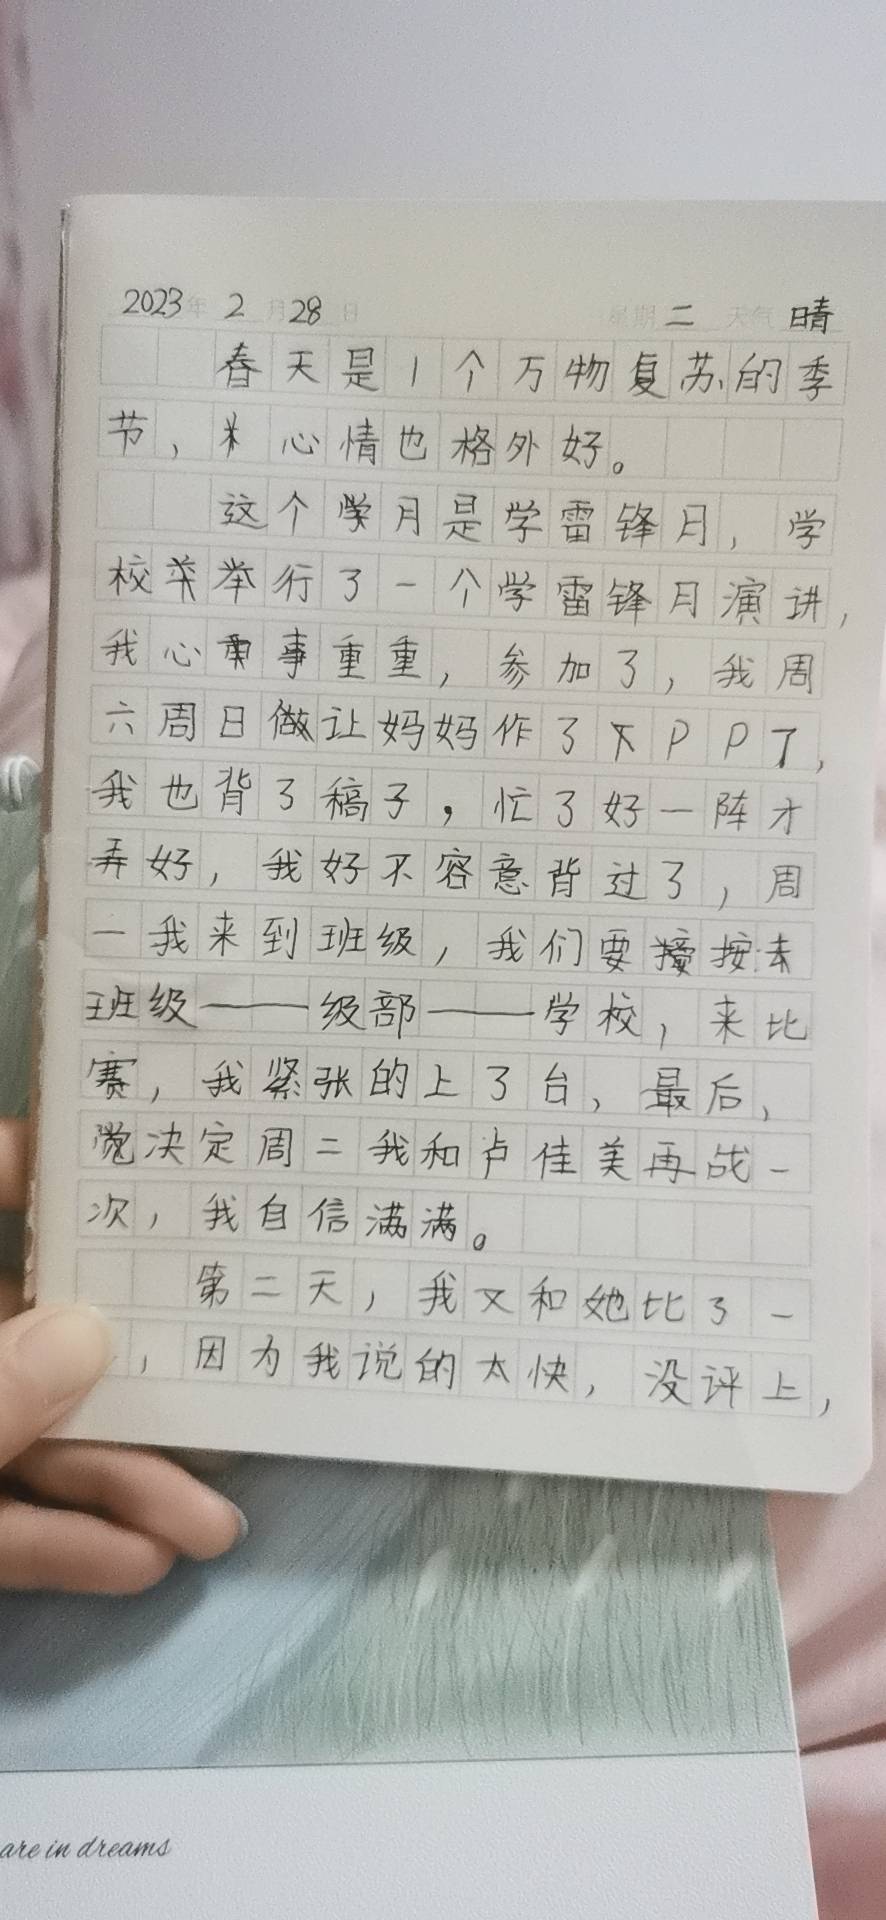 2023年 2月28日 星期二 天气 晴
春天是1个万物复苏的季
节，心情也格外好。
这个月是学雷锋月，学
校举行了一个学雷锋月演讲，
我心事重重，参加了，我周
六周日做让妈妈作了下PPT，
我也背了稿子，忙了好一阵才
弄好，我好不容意背过了，周
一我来到班级，我们要按去
班级——级部——学校，来比
赛，我紧张的上了台，最后，
决定周二我和卢佳美再战一
次，我自信满满。
第二天，我又和她比了一
，因为我说的太快，没评上，
are in dreams